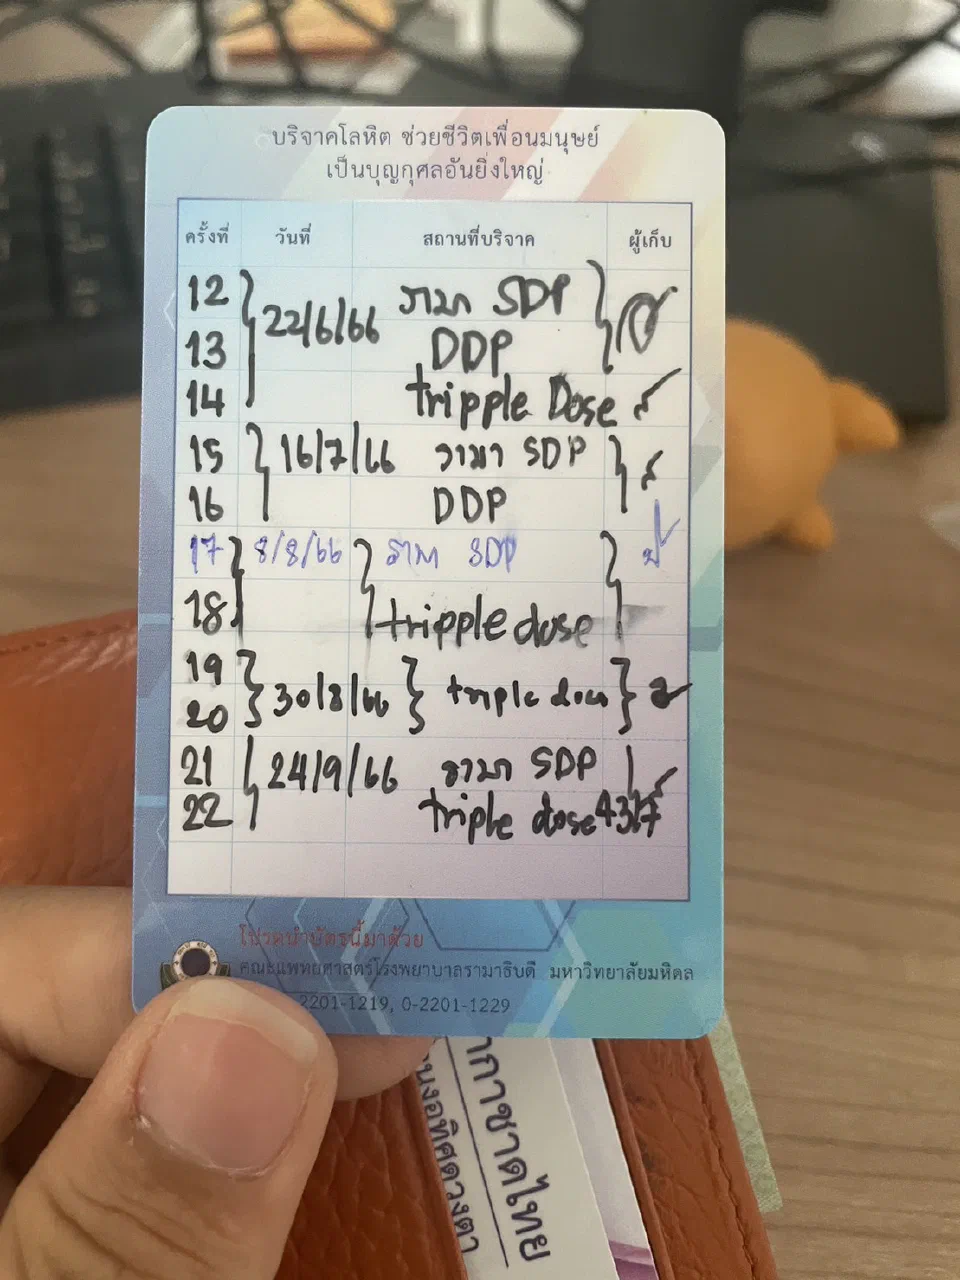 บริจาคโลหิต ช่วยชีวิตเพื่อนมนุษย์
เป็นบุญกุศลอันยิ่งใหญ่
ครั้งที่ วันที่ สถานที่บริจาค ผู้เก็บ
12 22/6/66 รามา SDP
13 DDP
14 tripple Dose
15 16/7/66 รามา SDP
16 DDP
17 8/8/66 รามา SDP
18 tripple dose
19
20 30/8/66 triple
21 24/9/66 รามา SDP
22 triple dose
โปรดนำบัตรนี้มาด้วย
คณะแพทยศาสตร์โรงพยาบาลรามาธิบดี มหาวิทยาลัยมหิดล
2201-1219, 0-2201-1229
กาชาดไทย